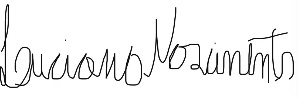 Luciano Nascimento